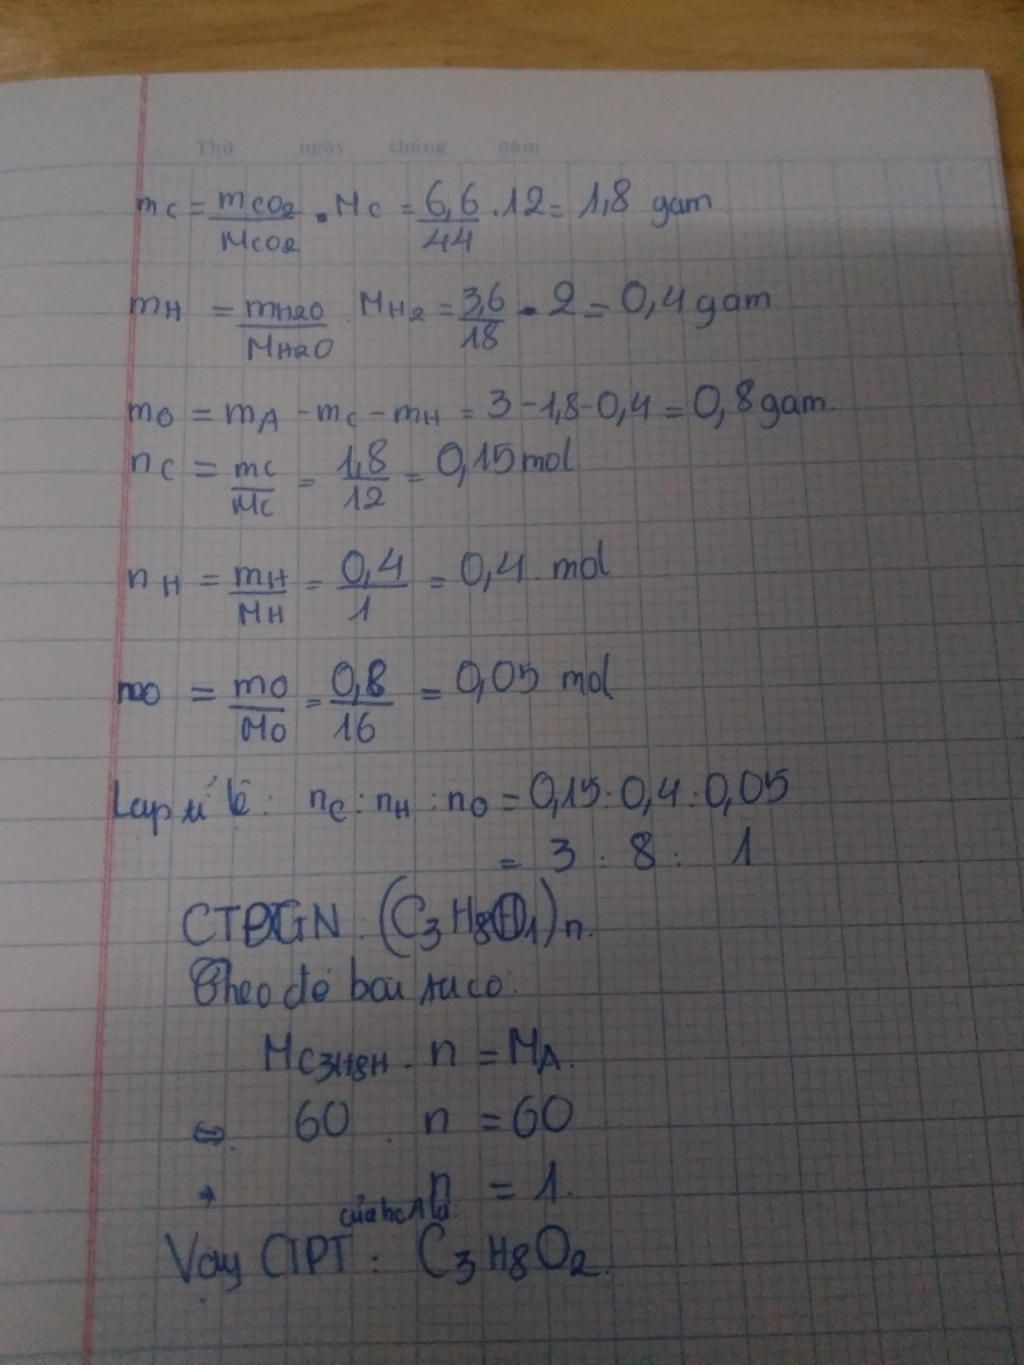 Thứ ngày tháng năm
mC = mCO2/MCO2 . MC = 6,6/44 . 12 = 1,8 gam
mH = mH2O/MH2O . MH2 = 3,6/18 . 2 = 0,4 gam
mO = mA - mC - mH = 3 - 1,8 - 0,4 = 0,8 gam.
nC = mC/MC = 1,8/12 = 0,15 mol
nH = mH/MH = 0,4/1 = 0,4 mol
nO = mO/MO = 0,8/16 = 0,05 mol
Lập tỉ lệ: nC : nH : nO = 0,15 : 0,4 : 0,05
= 3 : 8 : 1
CTĐGN : (C3H8O1)n.
Theo đề bài ta có:
MC3H8H . n = MA.
⇔ 60 . n = 60
→ n = 1.
của hc A là:
Vậy CTPT : C3H8O2.